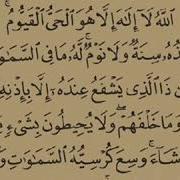 ٱللَّهُ لَآ إِلَٰهَ إِلَّا هُوَ ٱلْحَىُّ ٱلْقَيُّومُ ۚ
ذُهُۥ سِنَةٌ وَلَا نَوْمٌ ۚ لَّهُۥ مَا فِى ٱلسَّمَٰوَ
ن ذَا ٱلَّذِى يَشْفَعُ عِندَهُۥٓ إِلَّا بِإِذْنِهِ
وَمَا خَلْفَهُمْ ۖ وَلَا يُحِيطُونَ بِشَىْءٍ
شَآءَ ۚ وَسِعَ كُرْسِيُّهُ ٱلسَّمَٰوَٰتِ وَ